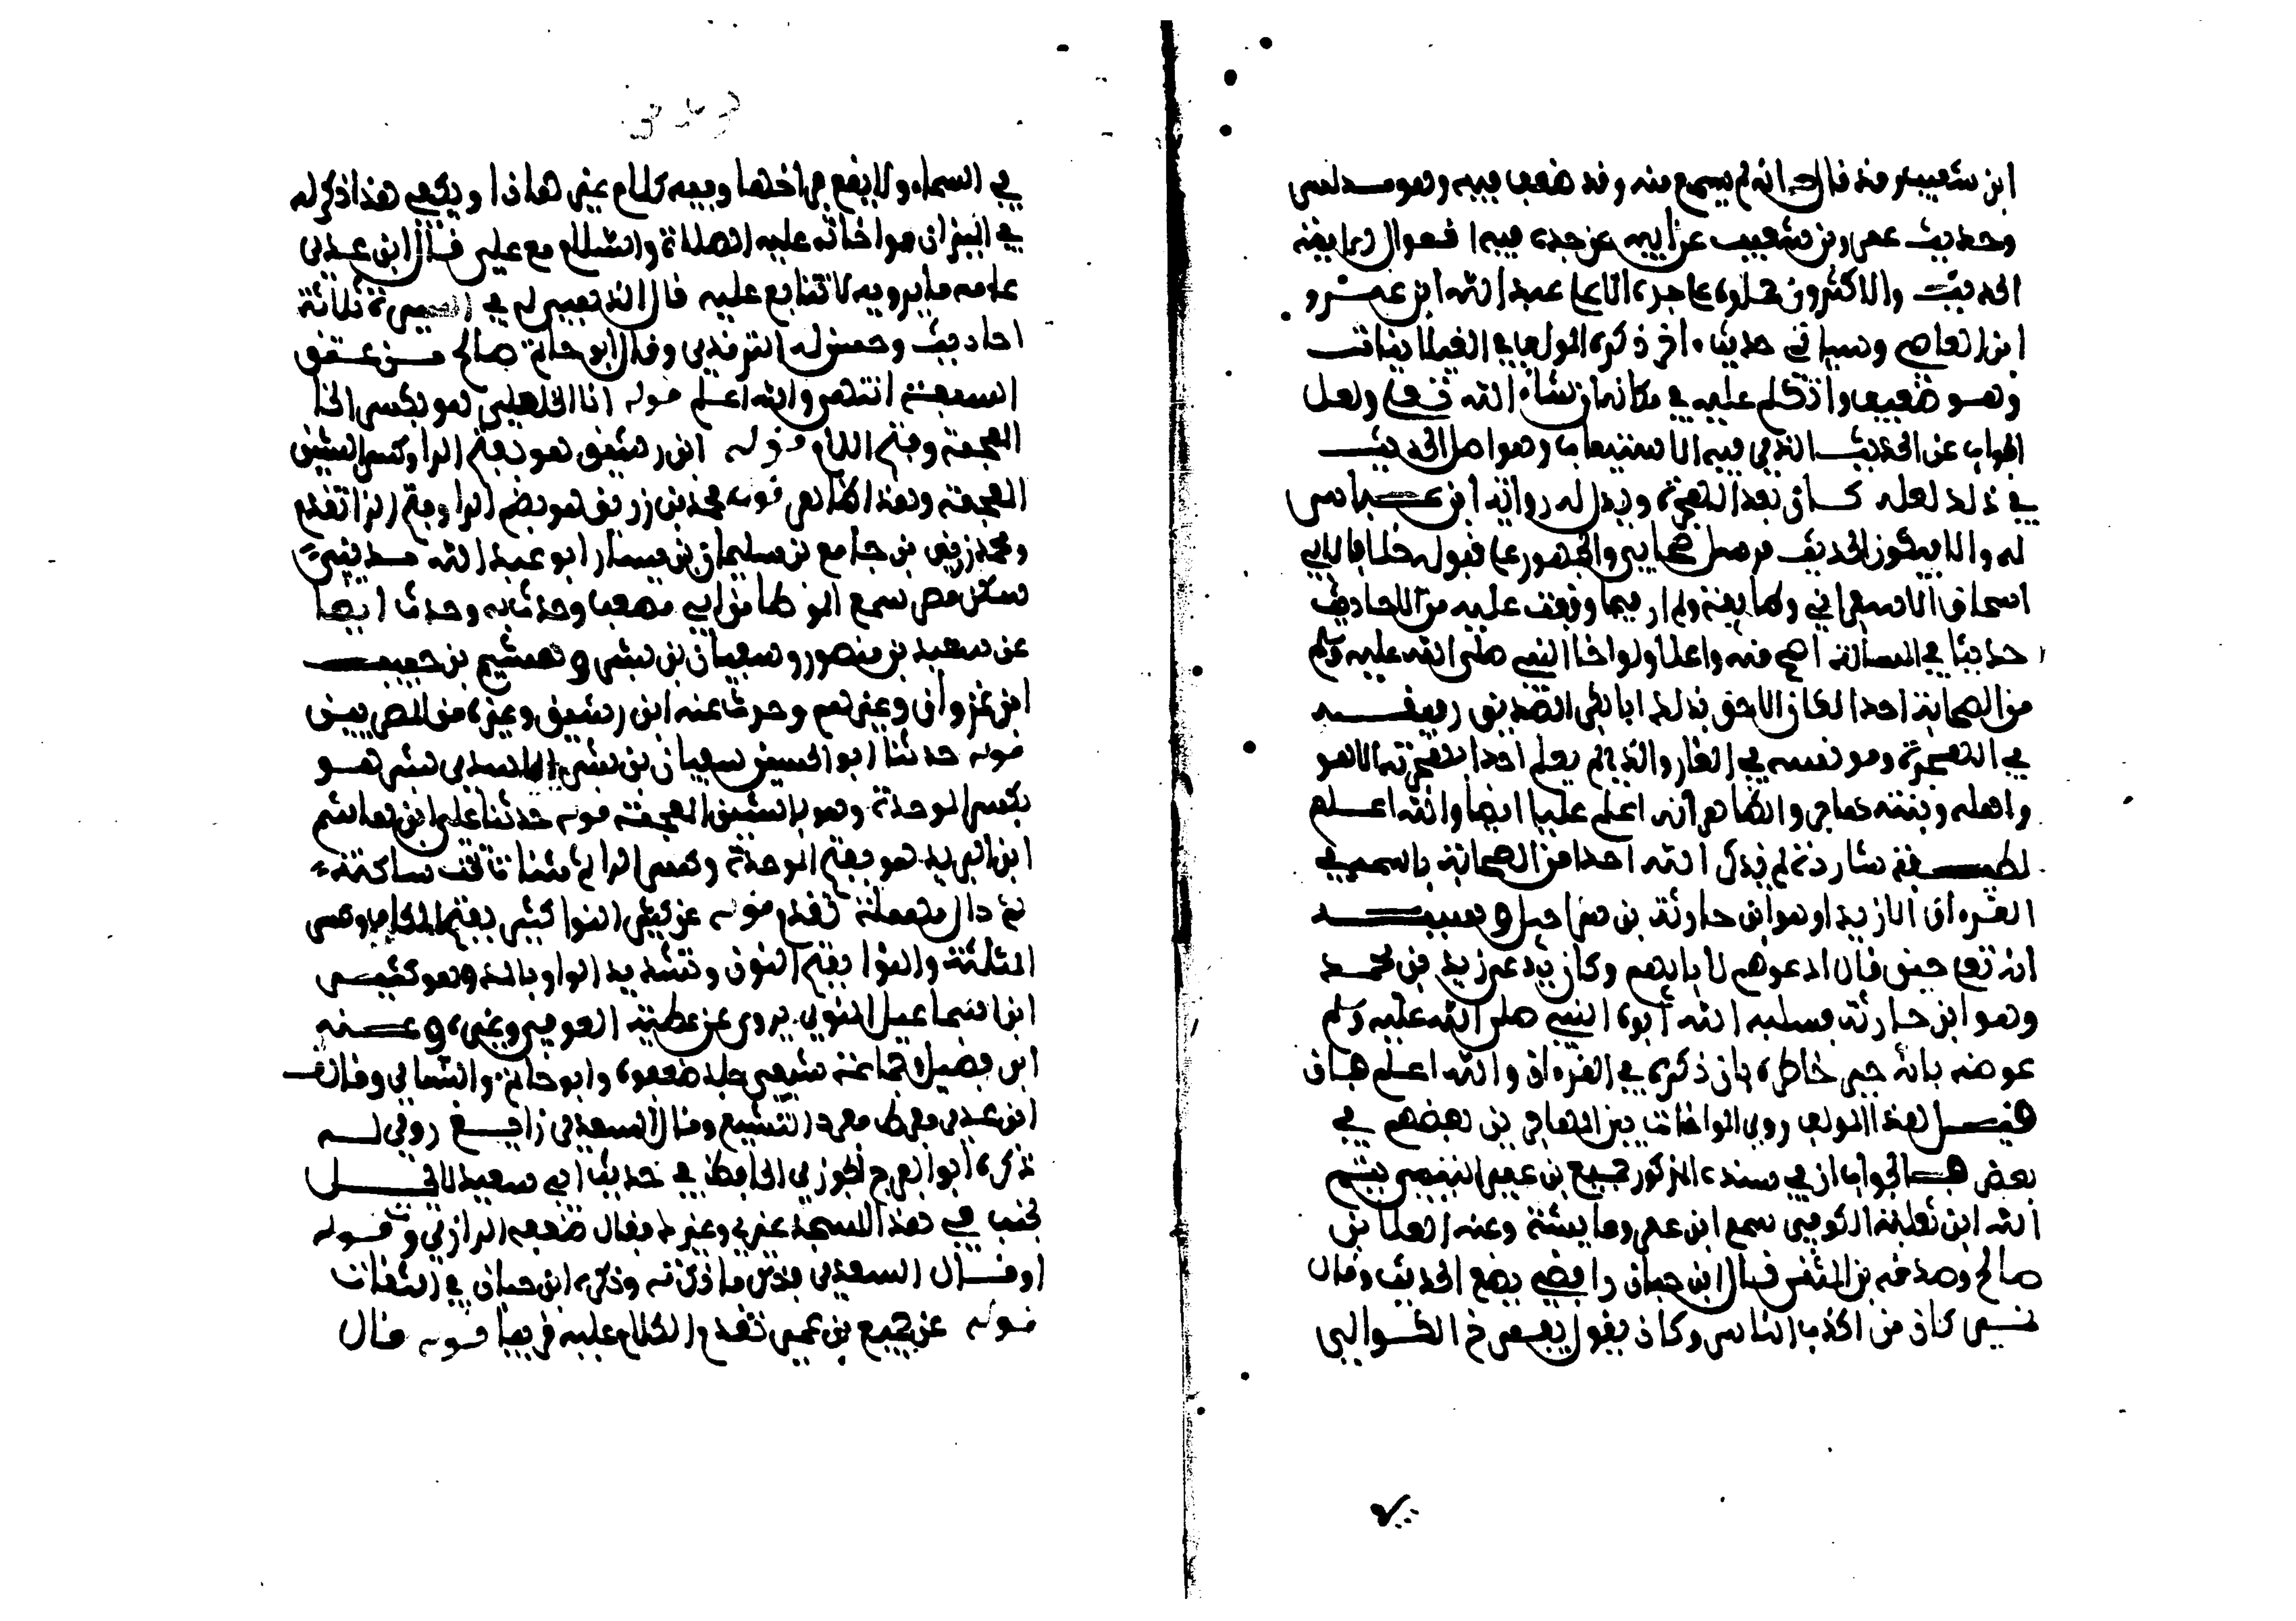 ابن شعيب وقد قال انه لم يسمع منه وقد ضعف فيه وهو مدلس
وحديث عمرو بن شعيب عن ابيه عن جده فيه اقوال رابعة
الحديث والاكثرون حملوه على جده الاعلى عبد الله ابن عمرو
ابن العاصي وسياتي حديثا اخر ذكره المولف في
وهو ضعيف واتكلم عليه في مكانه ان شاء الله تعالى ولعل
الجواب عن الحديث الذي فيه الاستيعاب وهو اصل الحديث
في ذلك لعله كان بعد الهجرة ويدل له رواية ابن عباس
له والا فيكون الحديث مرسل صحابي والجمهور على قبوله خلافا لابي
اسحاق الاسفراني وطايفة ولم ار فيما وقفت عليه من الاحاديث
حديثا في المسالة اصح منه واعلا ولو اخا النبي صلى الله عليه وسلم
من الصحابة احدا لكان الاحق بذلك ابا بكر الصديق رفيقه
في الهجرة ومونسه في الغار والذي لم يعلم احدا بهجرته الا هو
واهله وبنته عامر والظاهر انه اعلم عليا ايضا والله اعلم
لطيفة شاردة لم يذكر الله احدا من الصحابة باسمه في
القرءان الا زيدا وهو ابن حارثة بن شراحيل
الله تعالى حين قال ادعوهم لابايهم وكان يدعى زيد بن محمد
وهو ابن حارثة فسلبه الله ابوة النبي صلى الله عليه وسلم
عوضه بانه جبر خاطره بان ذكره في القرءان والله اعلم فان
قيل لهذا المولف روى المواخات بين المهاجرين بعضهم في
بعض فالجواب ان في سنده المذكور جميع بن عمير التيمي تيم
الله ابن ثعلبة الكوفي سمع ابن عمر وعايشة وعنه العلا بن
صالح وصدقة بن المثنى قال ابن حبان رافضي يضع الحديث وقال
نمير كان من اكذب الناس وكان يقول يفرخ الكراكي
في السماء ولا يقع فراخها وفيه كلام غير هاذا ويكفي هذا ذكر له
في الميزان مواخاته عليه الصلاة والسلام مع علي قال ابن عدي
عامة ما يرويه لا تتابع عليه قال الذهبي له في السنن ثلاثة
احاديث وحسن له الترمذي وقال ابو حاتم صالح من عتق
الشيعة انتهى والله اعلم قوله انا الخلعي هو بكسر الخا
المعجمة وفتح اللام قوله ابن رشيق هو بفتح الرا وكسر الشين
المعجمة وهذا ظاهر قوله محمد بن زريق هو بضم الزا وفتح الرا تقدم
ومحمد زريق بن جامع بن سليمان بن يسار ابو عبد الله مديني
سكن مصر سمع الموطا من ابي مصعب وحدث به وحدث ايضا
عن سعيد بن منصور وسفيان بن بشر وهشيم بن حبيب
ابن غزوان وغيرهم وحدث عنه ابن رشيق وغيره من المصريين
قوله حدثنا ابو الحسين سفيان بن بشر الاسدي بشر هو
بكسر الموحدة وهو بالشين المعجمة قوله حدثنا علي ابن هاشم
ابن البريد هو بفتح الموحدة وكسر الرا ثم مثناة تحت ساكنة
ثم دال مهملة تقدم قوله عن كثير النوا كثير بفتح الكاف وكسر
المثلثة والنوا بفتح النون وتشديد الواو بالمد وهو كثير
ابن اسماعيل النوي يروي عن عطية العوفي وغيره وعنه
ابن فضيل وجماعة شيعي جلد ضعفوه وابو حاتم والنسائي وقال
ابن عدي مفرط مفرد التشيع وقال السعدي زايغ روى له
ذكره ابو الفرج الجوزي الحافظ في حديث ابي سعيد لا يحل
يجنب في هذا المسجد غيري وغيرك فقال ضعفه الرازي و قوله
او قال السعدي فذكر ما ذكرته وذكره ابن حبان في الثقات
قوله عن جميع بن عمير تقدم الكلام عليه قريبا قوله قال